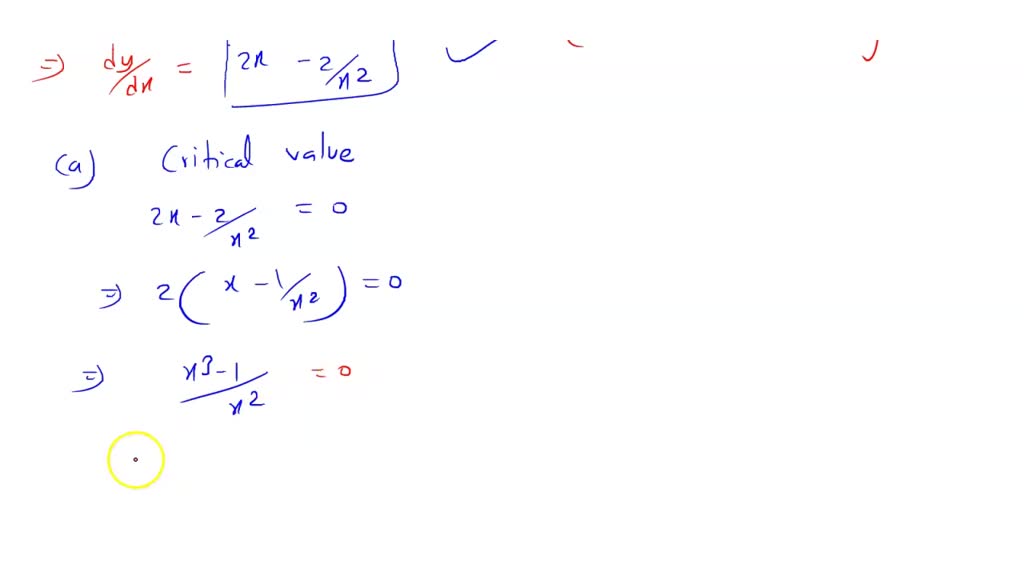 ⇒ dy/dx = 2x - 2/x²
(a) Critical value
2x - 2/x² = 0
⇒ 2(x - 1/x²) = 0
⇒ x3-1/x² = 0